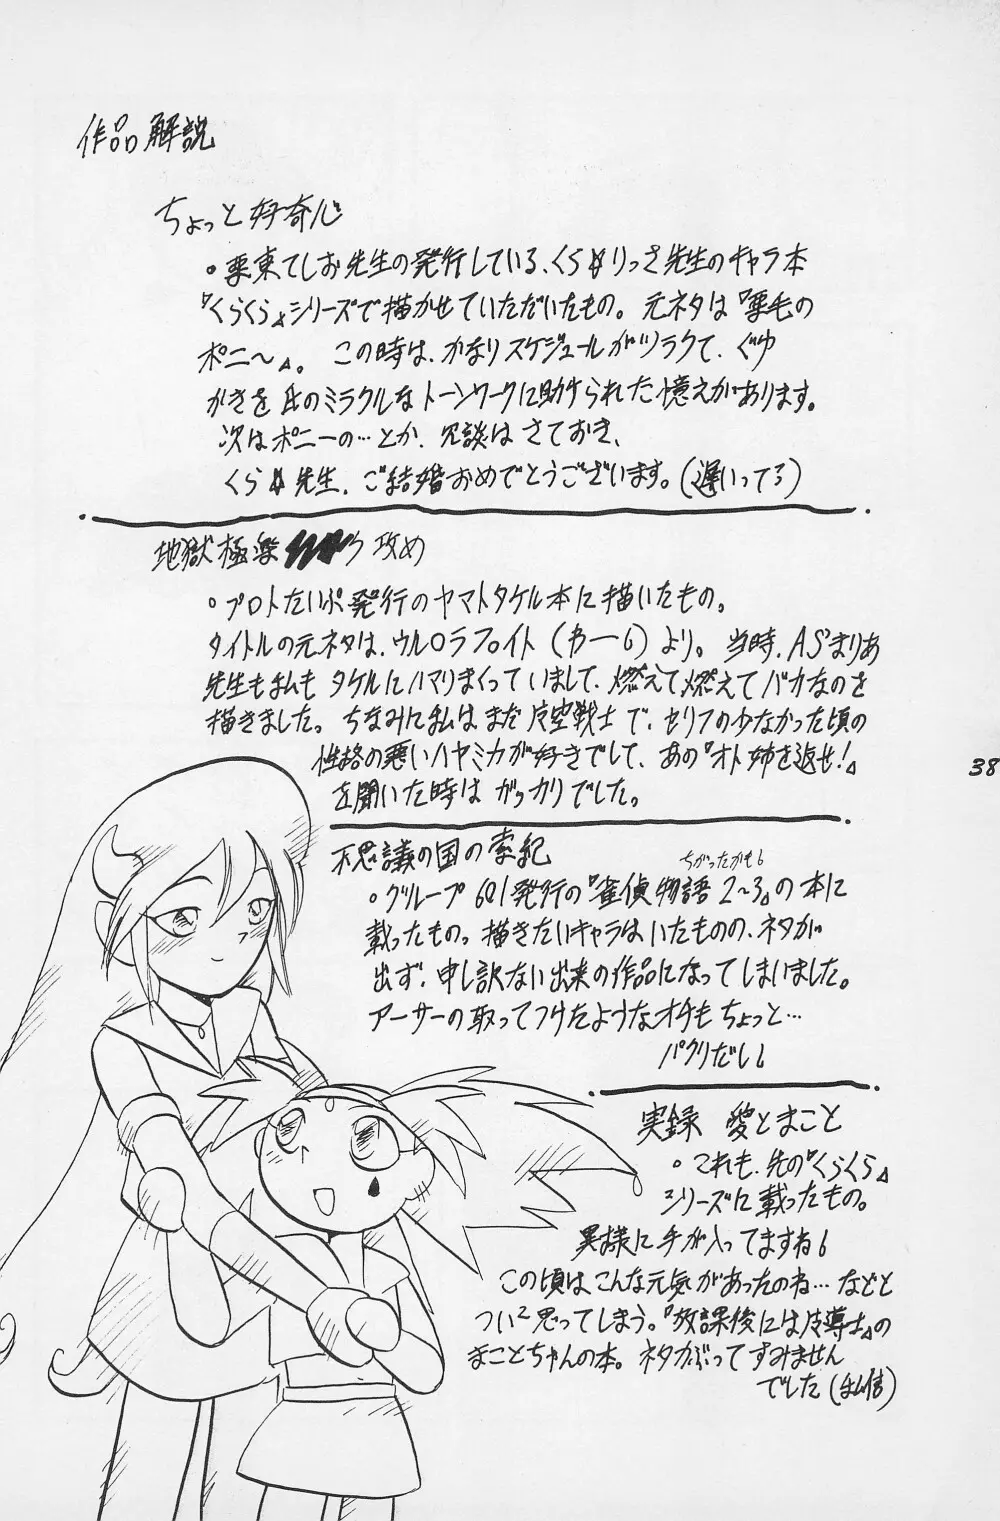 作品解説
ちょっと好奇心
。栗東てしお先生の発行している、くら☆りっさ先生のキャラ本
『くらくら』シリーズで描かせていただいたもの。元ネタは『栗毛の
ポニ〜』。この時は、かなりスケジュールがツラクて、ぐゆ
がきを氏のミラクルなトーンワークに助けられた憶えがあります。
次はポニーの…とか、冗談はさておき、
くら☆先生、ご結婚おめでとうございます。(遅いってろ)
地獄極楽 攻め
。プロトたいぷ発行のヤマトタケル本に描いたもの。
タイトルの元ネタは、ウル○ラファイト(カー6)より。当時、AS'まりあ
先生も私もタケルにハマりまくっていまして、燃えて燃えてバカなのを
描きました。ちなみに私はまだ 空戦士で、セリフの少なかった頃の
性格の悪いハヤミカが好きでして、あの『オト姉を返せ!』
を聞いた時はガッカリでした。
38
不思議の国の 紀
ちがったかも。
。グループ601発行の『雀偵物語2〜3』の本に
載ったもの。描きたいキャラはいたものの、ネタが
出ず、申し訳ない出来の作品になってしまいました。
アーサーの取ってつけたようなオチもちょっと…
パクリだし。
実録 愛とまこと
。これも、先の『くらくら』
シリーズに載ったもの。
異様に手が入ってますね。
この頃はこんな元気があったのね…などと
つい²思ってしまう。『放課後には 導士』の
まことちゃんの本。ネタかぶってすみません
でした(